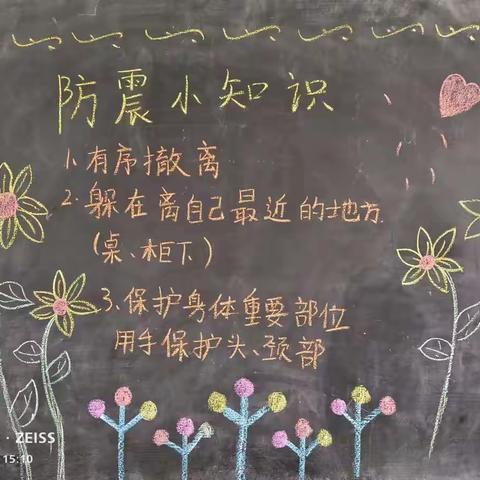 防震小知识
1、有序撤离
2.躲在离自己最近的地方.
(桌、柜下)
3、保护身体重要部位
用手保护头、颈部
· ZEISS
15:10